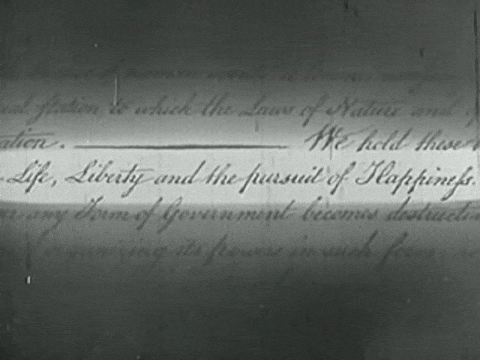 to which the Laws of Nature and
ation. We hold these
Life, Liberty and the pursuit of Happiness.
any Form of Government becomes destructive
its powers in such form,